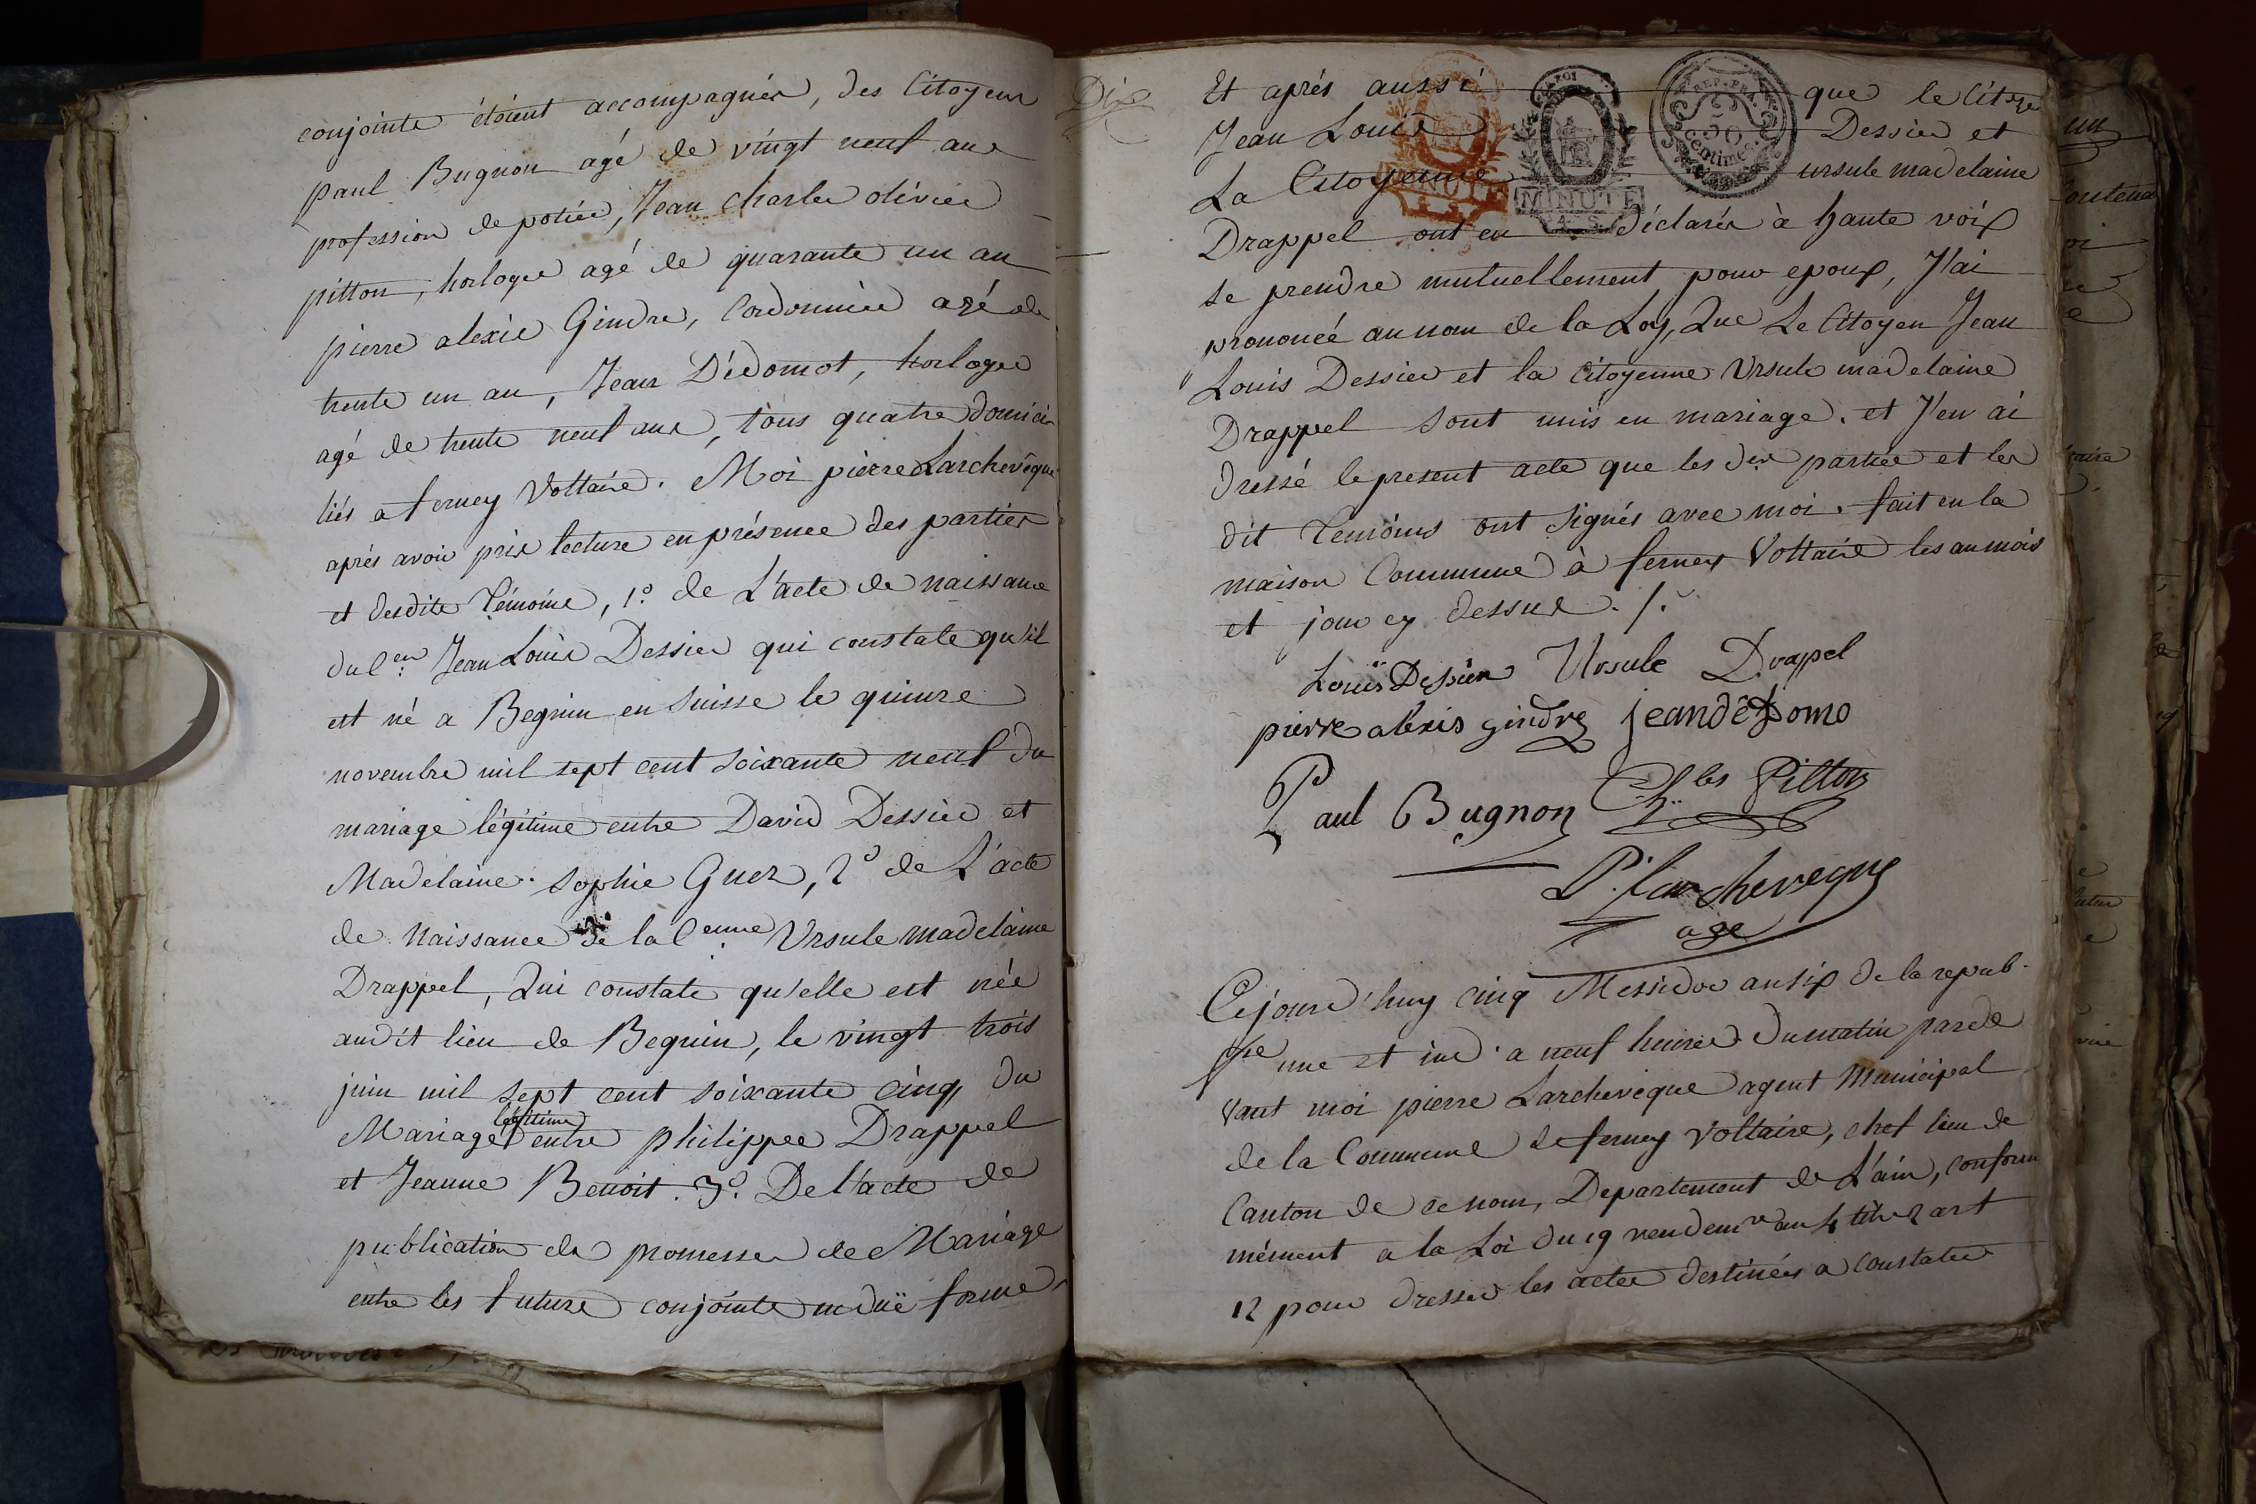 conjoints étoient accompagnés, des Citoyens
paul Bugnon agé de vingt neuf ans
profession de potier, Jean charles olivier
pitton, horloger agé de quarante un an
pierre alexis Gindre, Cordonnier agé de
trente un an, Jean Dédomot, horloger
agé de trente neuf ans, tous quatre domici-
liés a ferney Voltaire. Moi pierre Larchevêque
après avoir pris lecture en présence des parties
et desdits Témoins, 1.º de L'acte de naissance
du C.en Jean Louis Dessier qui constate qu'il
est né a Begnin en Suisse le quinze
novembre mil sept cent soixante neuf du
mariage légitime entre David Dessier et
Madelaine Sophie Guer, 2º de L'acte
de Naissance de la C.enne Ursule madelaine
Drappel, Qui constate qu'elle est née
audit lieu de Begnin, le vingt trois
juin mil sept cent soixante cinq, du
Mariage légitime entre philippe Drappel
et Jeanne Benoit. 3º. De l'acte de
publication de promesses de Mariage
entre les futurs conjoints en dûe forme
Dix
Et après aussi que le Citoyen
Jean Louis Dessier et
La Citoyenne ursule madelaine
Drappel ont eu déclarés à haute voix
se prendre mutuellement pour epoux, J'ai
prononcé au nom de la Loy, Que Le Citoyen Jean
Louis Dessier et la Citoyenne Ursule madelaine
Drappel sont unis en mariage. et J'en ai
dressé le present acte que les dex parties et les
dit Temoins ont signés avec moi. fait en la
maison Commune à ferney Voltaire les an mois
et jour cy dessus. /.
REP. FRA.
50
Centimes.
MINUTE
MINUTE
A. S.
Louis Dessier Ursule Drappel
pierre alexis gindre jean dèdomo
Paul Bugnon Ch.les Pitton
P. Larcheveque
age
Cejourd'huy cinq Messidor an six de la repub-
lique une et ind. a neuf heures du matin parde
vant moi pierre Larcheveque agent Municipal
de la Commune de ferney Voltaire, chef lieu de
Canton de ce nom, Departement de L'ain, conform
mément a la Loi du 19 vendemre an 4 titre 2 art
12 pour dresser les actes destinées a constater